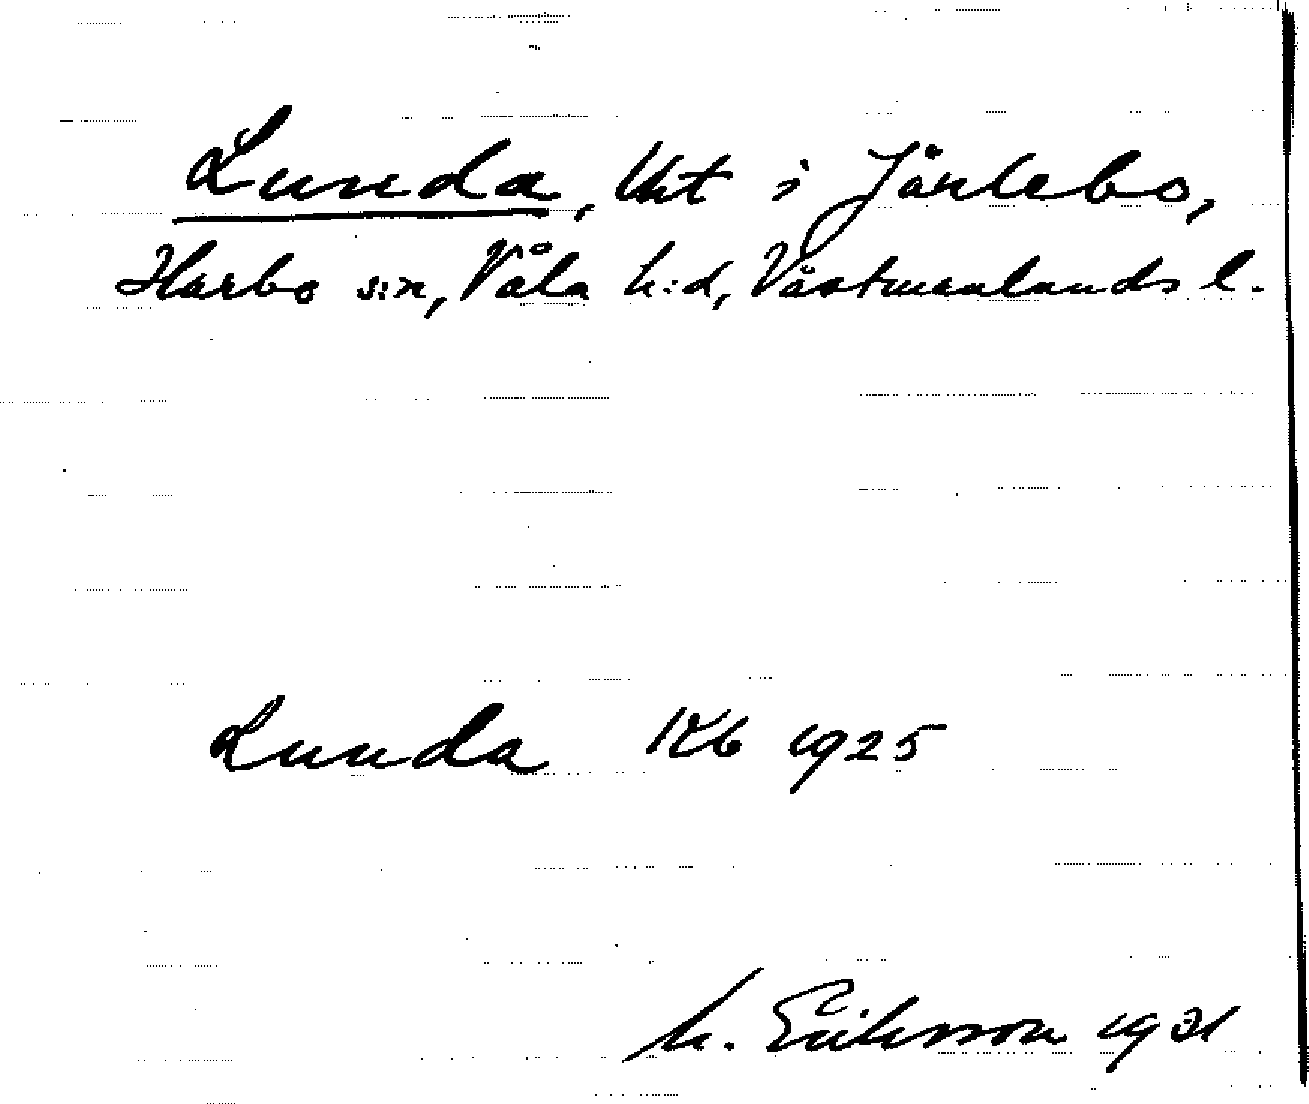 Lunda, lht i Järlebo,
Harbo s:n, Våla h:d, Västmanlands l.
Lunda Kb 1925
M. Eriksson 1931